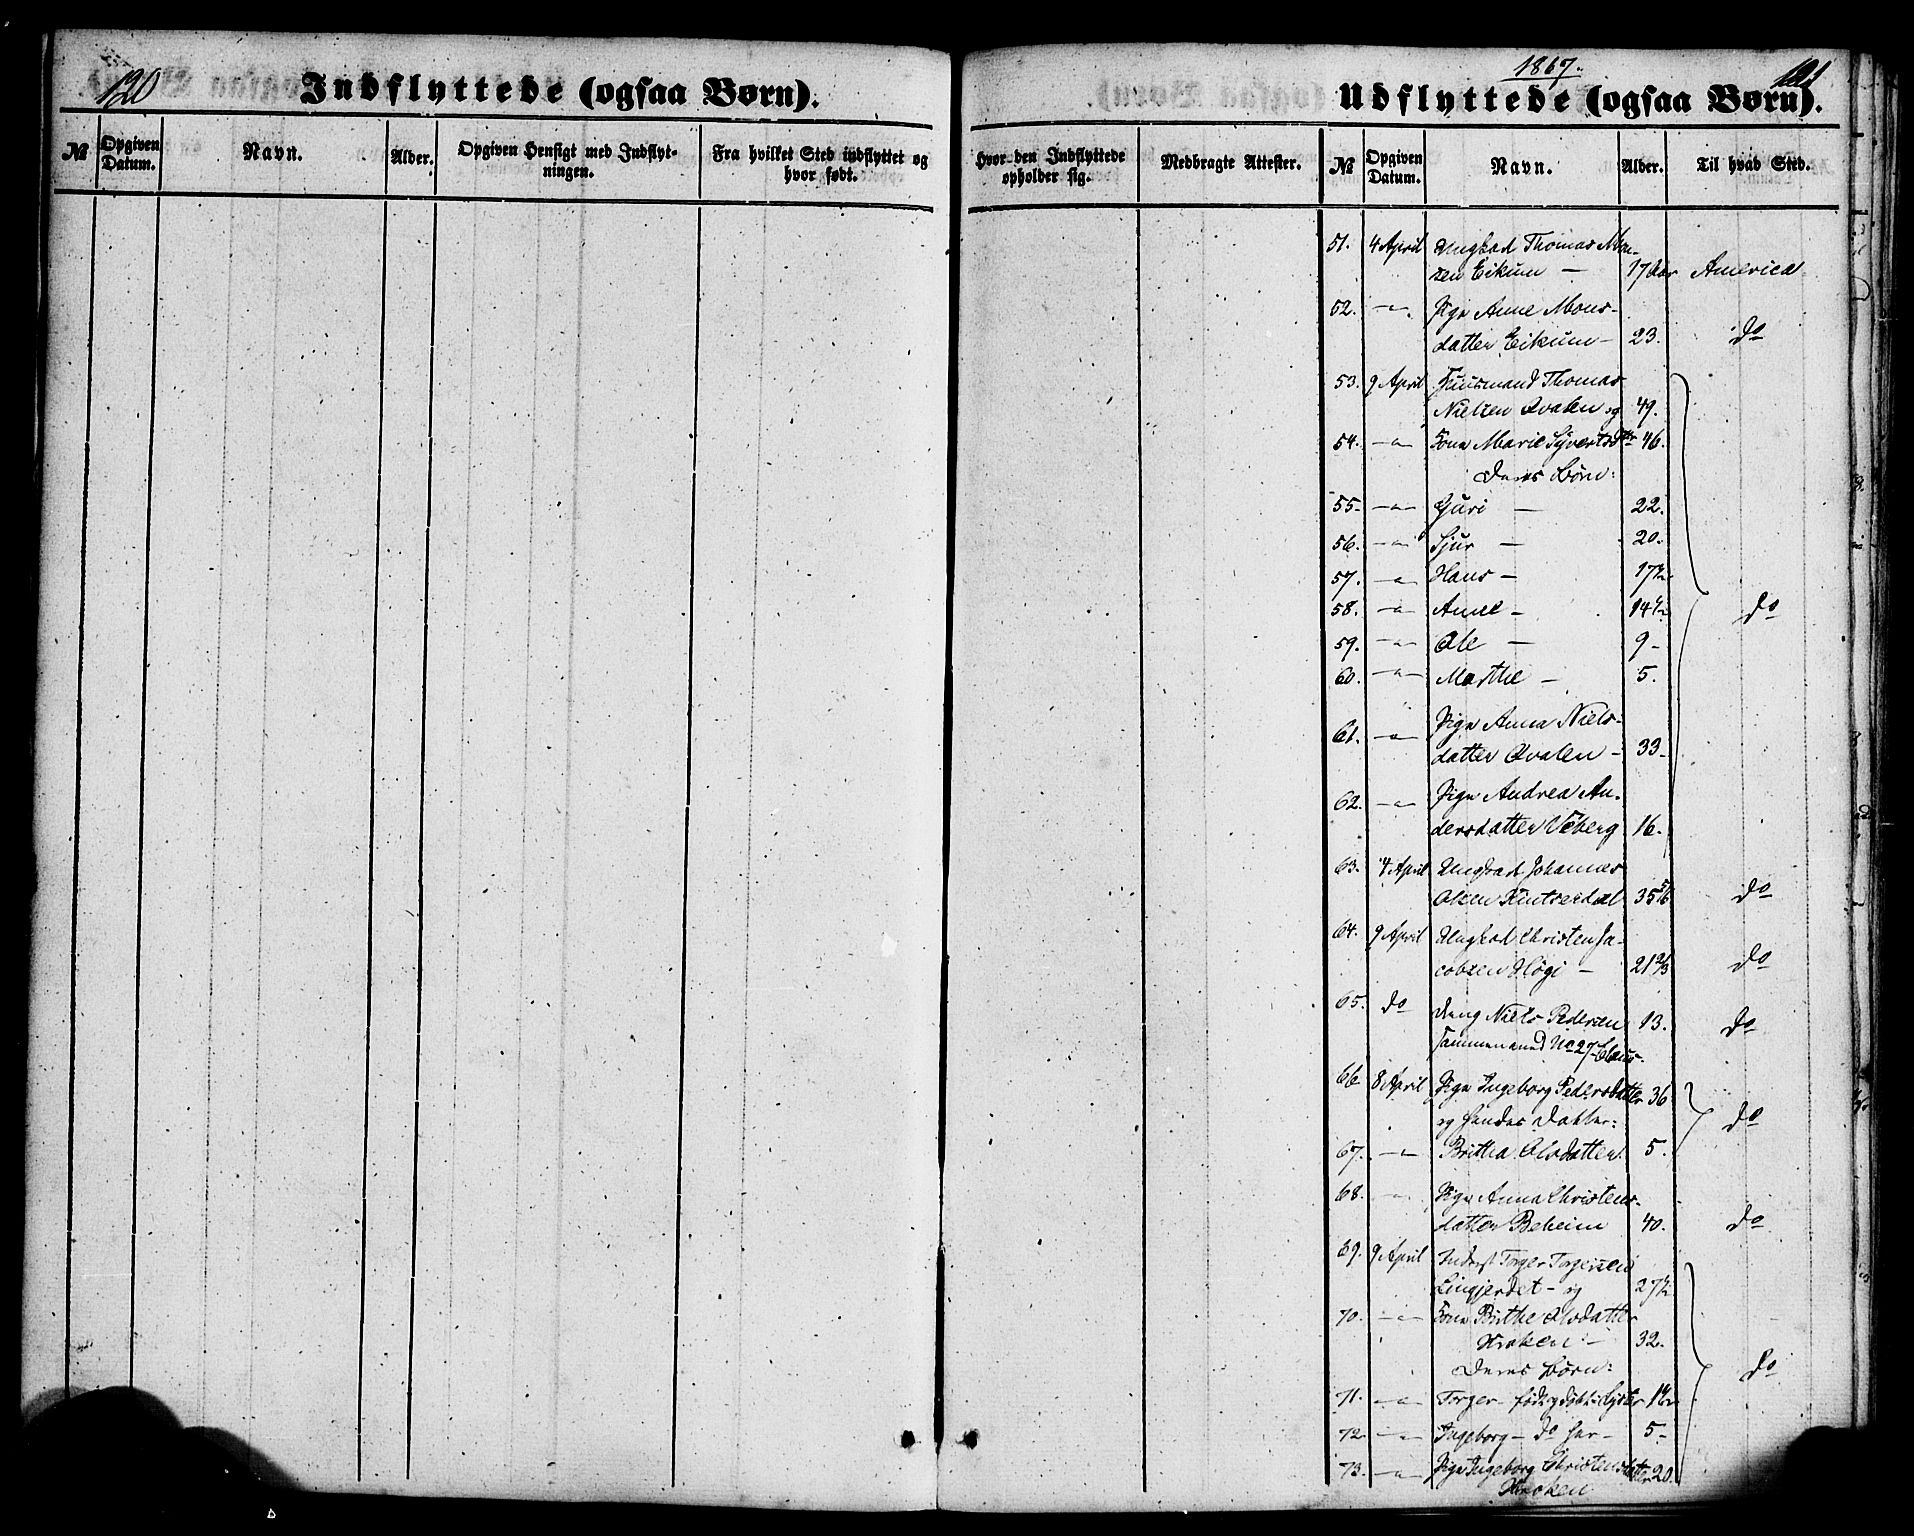 120
Indflyttede (ogsaa Børn).
№
Opgiven Datum.
Navn.
Alder.
Opgiven Hensigt med Indflyt-
ningen.
Fra hvilket Sted indflyttet og
hvor født.
1867.
121
Udflyttede (ogsaa Børn).
Hvor den Indflyttede
opholder sig.
Medbragte Attester.
№
Opgiven Datum.
Navn.
Alder.
Til hvad Sted.
51. 4 April Ungkarl Thomas Mon-
sen Eikum — 17 Aar America
52. —"— Pige Anne Mons-
datter Eikum — 23. do
53. 9 April Huusmand Thomas
Nielsen Qvalen og 49.
54. —"— Kone Marie Sjvertsdtr 46.
Deres Børn:
55. —"— Guri — 22.
56. —"— Sjur — 20.
57. —"— Hans — 17½
58. —"— Anne — 14½ do
59. —"— Ole — 9 —
60. —"— Marthe — 5.
61. —"— Pige Anna Niels-
datter Qvalen — 33 —
62. —"— Pige Andrea An-
dersdatter Veberg 16.
63. 4 April Ungkarl Johannes
Olsen 35 5/6 do
64. 9 April Ungkarl Christen Ja-
cobsen Høgi — 21 2/3 do
65. do Dreng Niels Pedersen 13. do
Sammen med No 27
66. 8 April Pige Ingeborg Pedersdatter 36
og hendes Datter: do
67. —"— Brithа Olsdatter 5.
68. —"— Pige Anna Christens-
datter Beheim 40. do
69. 9 April Inderst Torger Torgersen
Lingjerdet — og 27½
70. —"— Kone Brithe Olsdatter
Kroken — 32.
Deres Børn: do
71. —"— Torger — født og døbt i Lyster 1½
72. —"— Ingeborg — do her — 5 —
73. —"— Pige Ingeborg Christensdatter 20.
Kroken